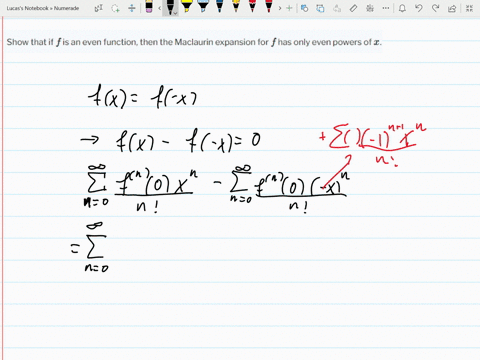 Lucas's Notebook » Numerade
Show that if f is an even function, then the Maclaurin expansion for f has only even powers of x.
f(x) = f(-x)
→ f(x) - f(-x) = 0
+ Σ( ) (-1)^{n+1} x^n / n!
∞ Σ n=0 f^{(n)}(0) x^n / n! - ∞ Σ n=0 f^{(n)}(0) (-x)^n / n!
= ∞ Σ n=0